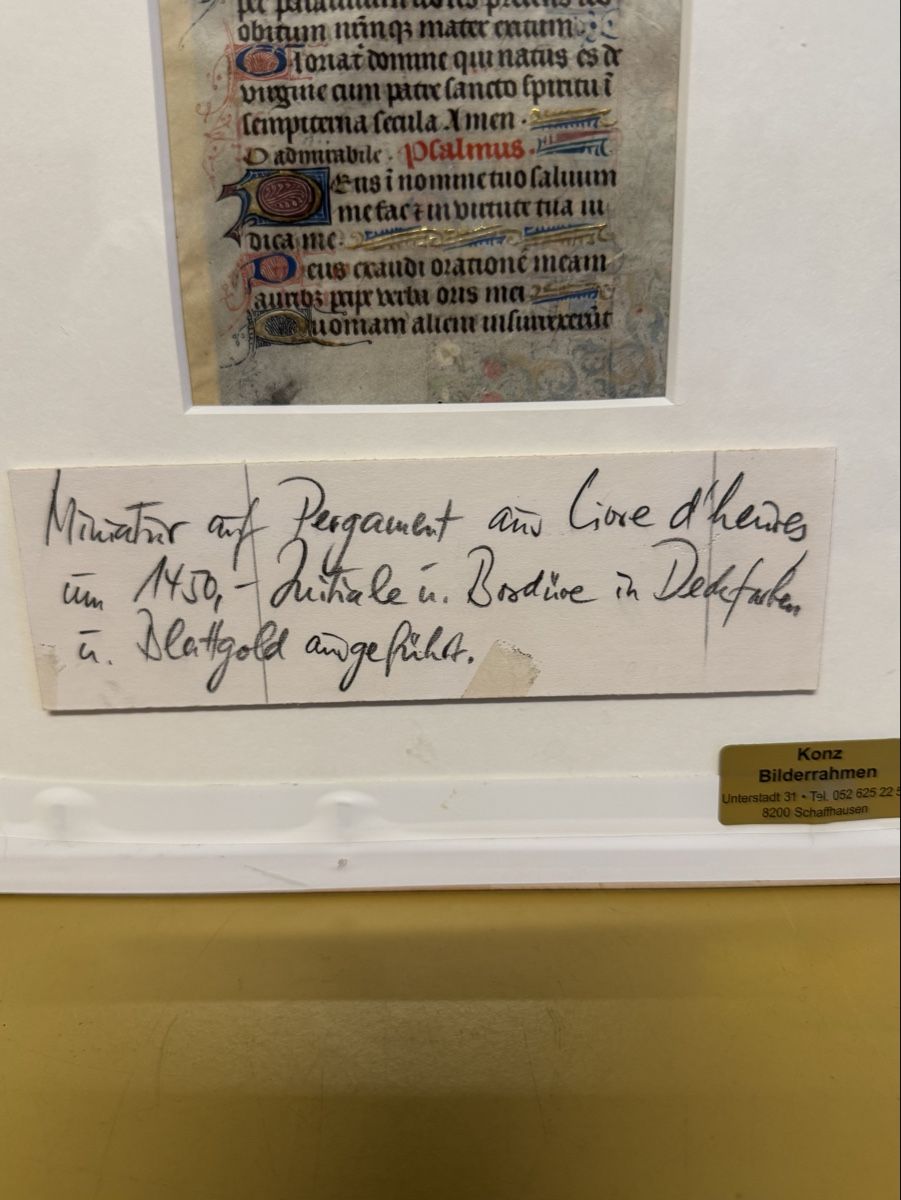 obitum nūnqz mater exitum.
Gloria t̄ domine qui natus es de
virgine cum patre sancto spiritu ī
sempiterna secula Amen.
O admirabile. Psalmus.
Deus ī nomine tuo saluum
me fac ⁊ in virtute tua iu
dica me.
Deus exaudi orationē meam
auribz verba oris mei
Quoniam alieni insurrexerūt
Miniatur auf Pergament aus Livre d'heures
um 1450,- Initiale u. Bordüre in Deckfarben
u. Blattgold ausgeführt.
Konz
Bilderrahmen
Unterstadt 31 • Tel. 052 625 22
8200 Schaffhausen